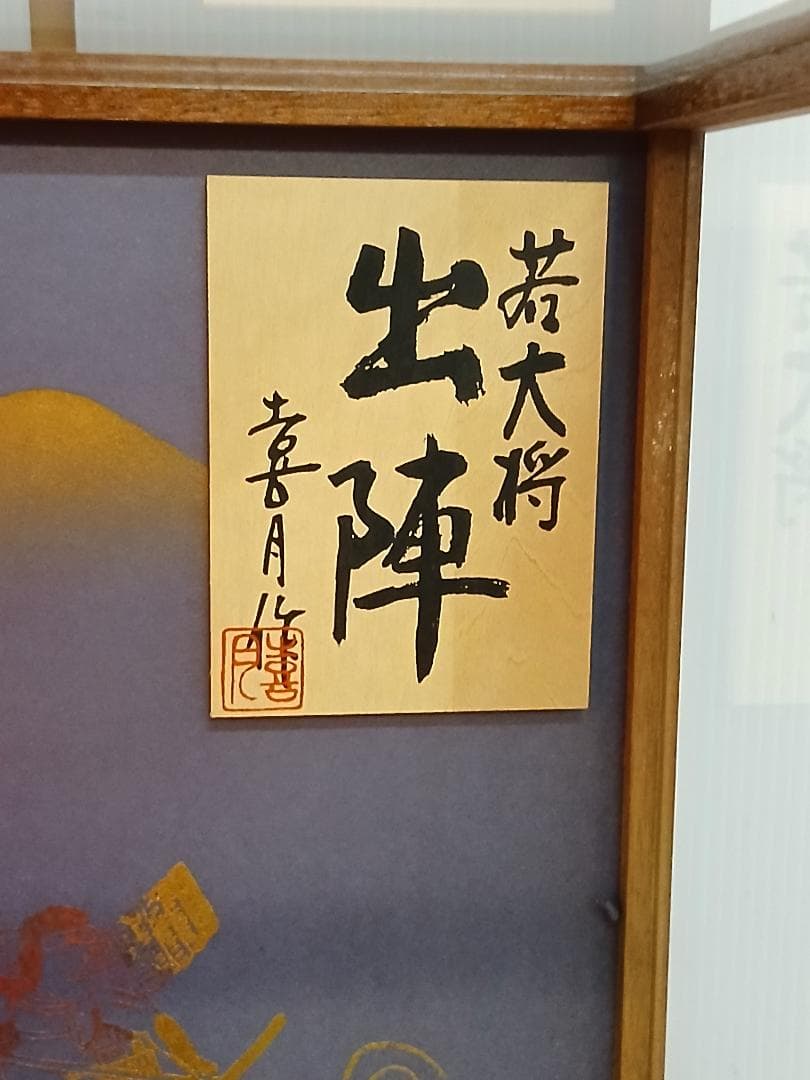 若大将
出陣
喜月作
喜月